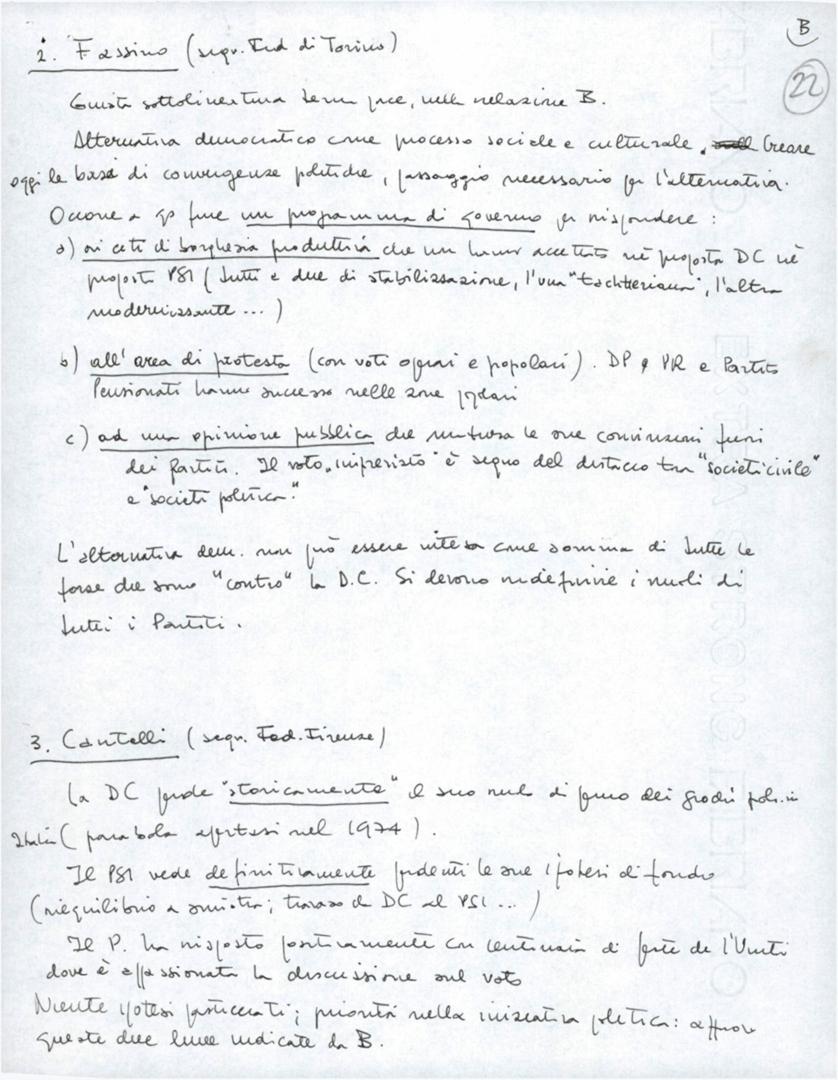 B
22
2. Fassino (segr. Fed di Torino)
Giusta sottolineatura tema pace, nella relazione B.
Alternativa democratica come processo sociale e culturale. Creare
oggi le basi di convergenze politiche, passaggio necessario per l'alternativa.
Occorre a un programma di governo per rispondere:
a) ai ceti di borghesia produttiva che non hanno accettato né proposta DC né
proposta PSI (tutti e due di stabilizzazione, l'una "tachteriana", l'altra
modernizzante ...)
b) all'area di protesta (con voti operai e popolari). DP e PR e Partito
Pensionati hanno successo nelle zone popolari
c) ad una opinione pubblica che matura le sue convinzioni fuori
dei partiti. Il voto "imprevisto" è segno del distacco tra "società civile"
e "società politica".
L'alternativa dem. non può essere intesa come somma di tutte le
forze che sono "contro" la D.C. Si devono ridefinire i ruoli di
tutti i Partiti.
3. Cantelli (segr. Fed. Firenze)
La DC perde "storicamente" il suo ruolo di perno dei giochi pol. in
Italia (parabola apertasi nel 1974).
Il PSI vede definitivamente perdenti le sue ipotesi di fondo
(riequilibrio a sinistra; travaso da DC al PSI ...)
Il P. ha risposto positivamente con centinaia di feste de l'Unità
dove è appassionata la discussione sul voto
Niente ipotesi pasticciati; priorità nella iniziativa politica: approvo
queste due linee indicate da B.